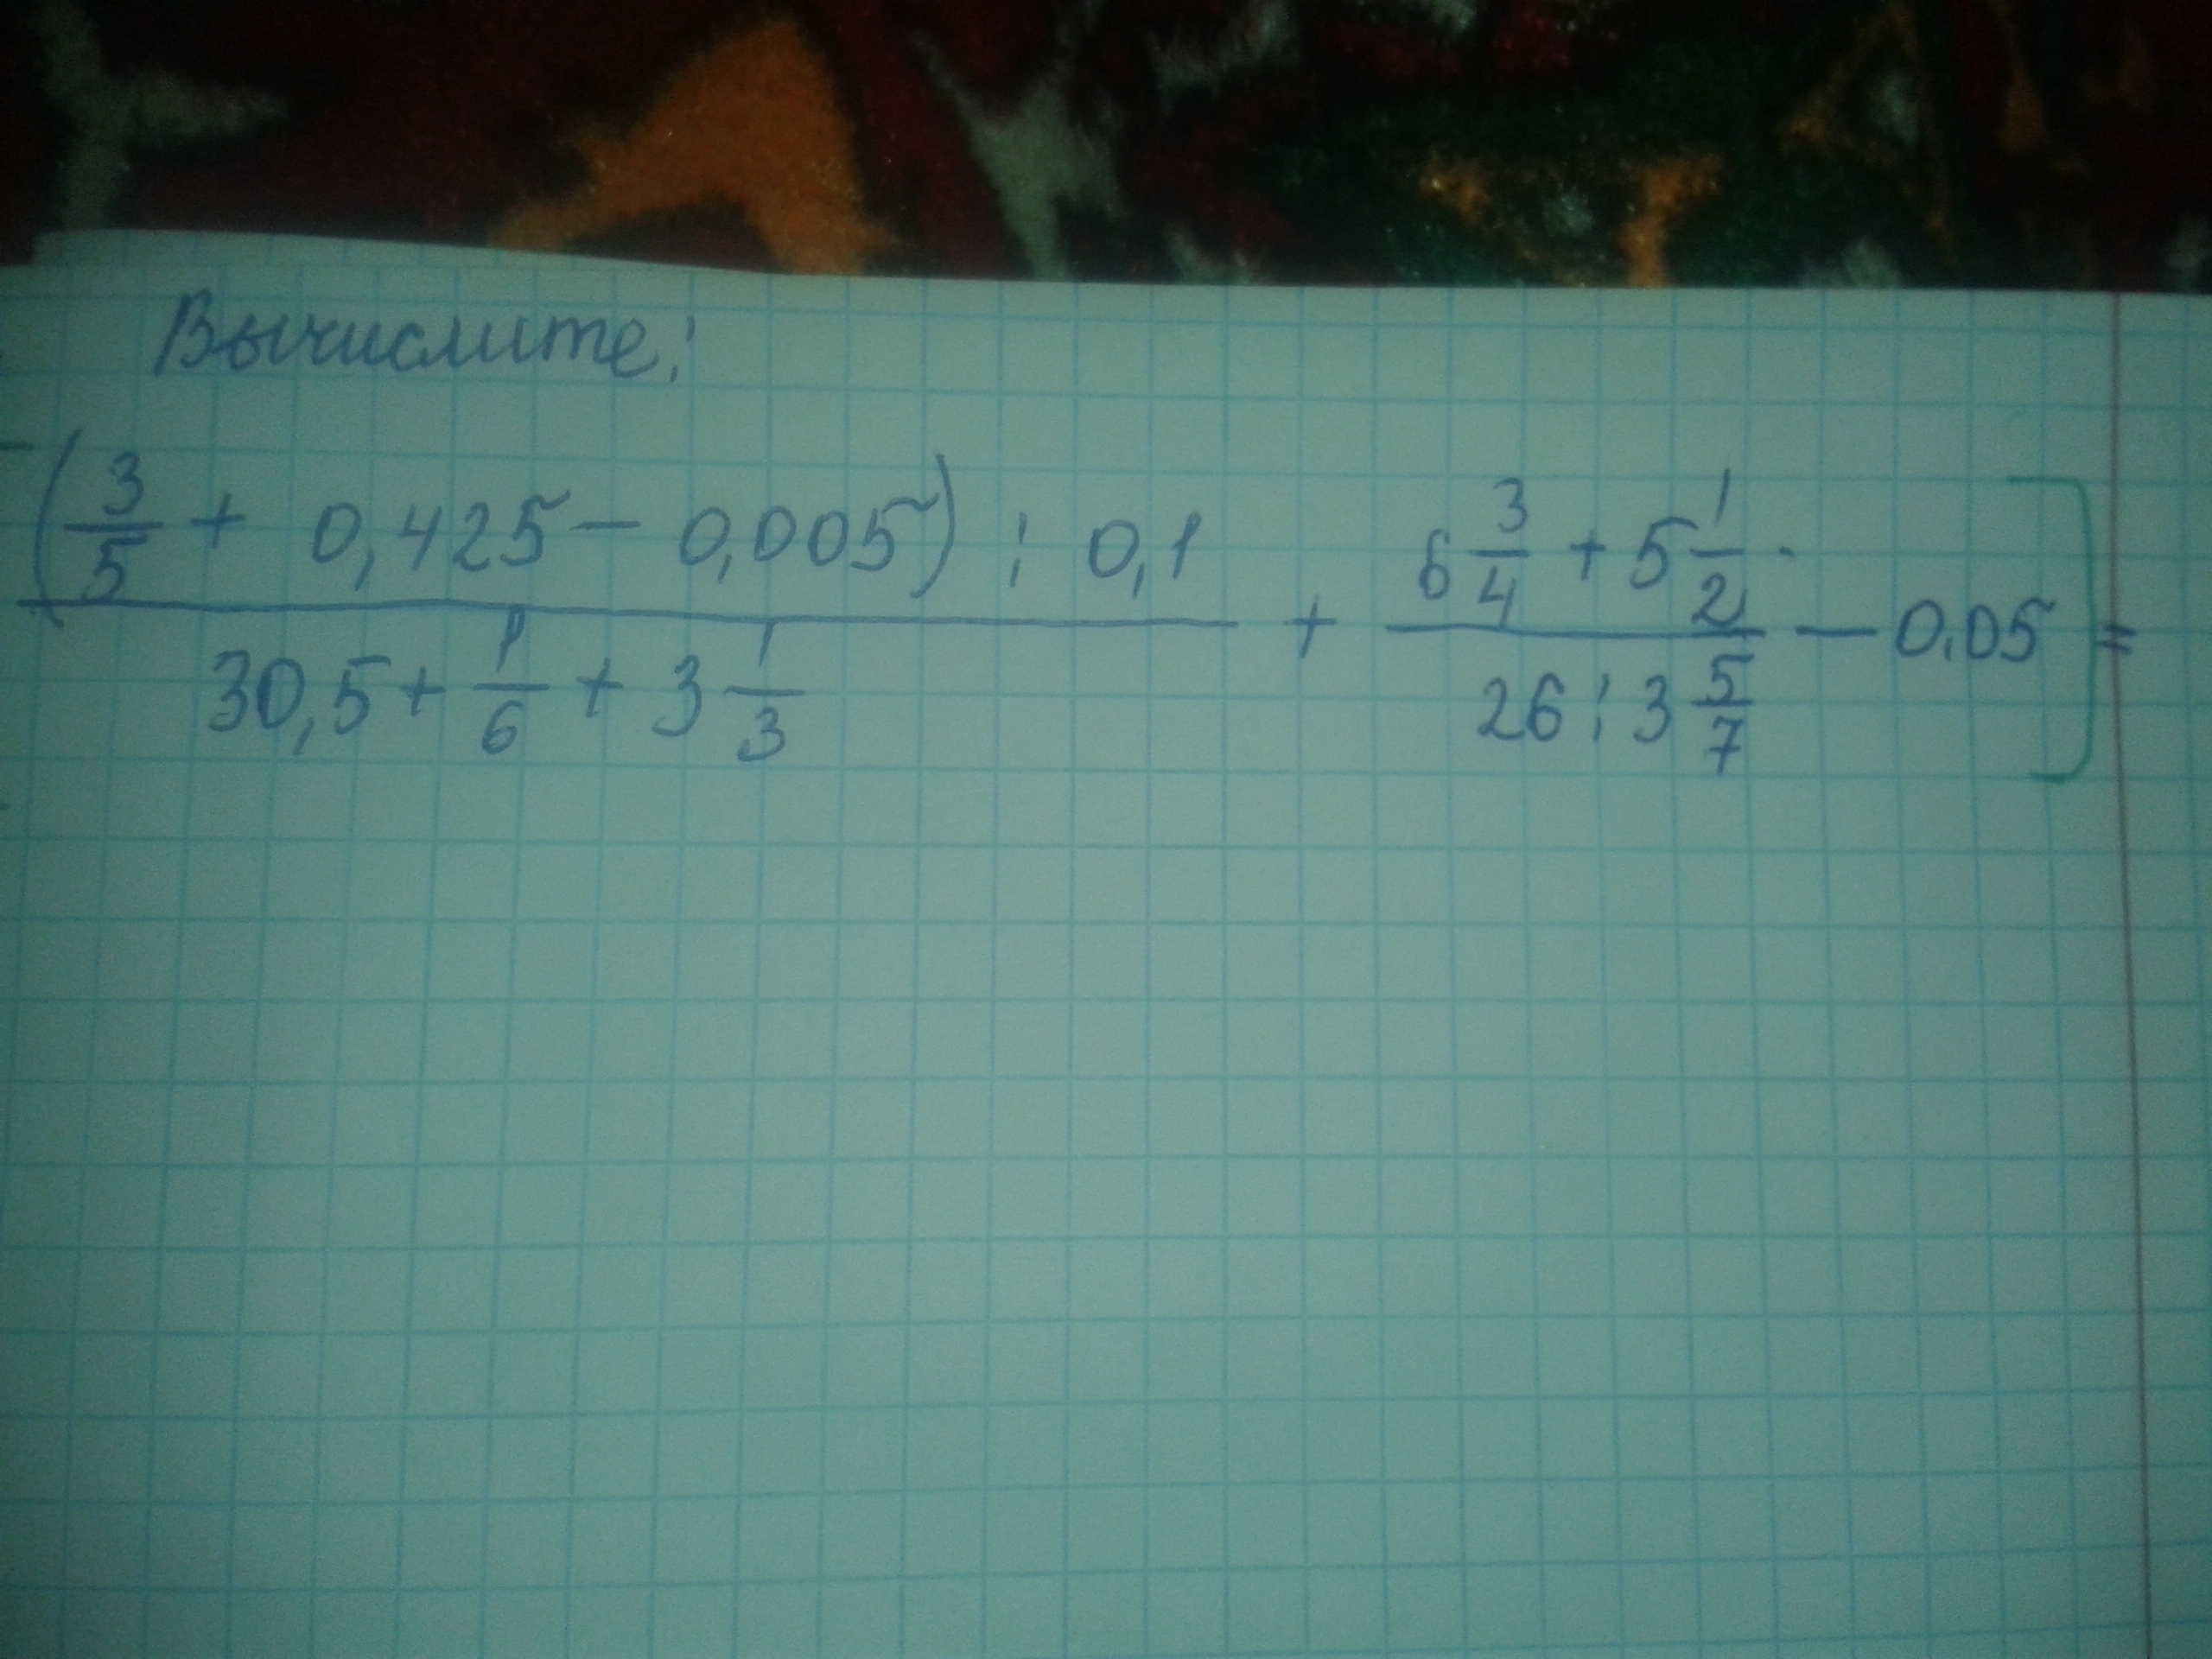 Вычислите:
(3/5 + 0,425 - 0,005) : 0,1 / 30,5 + 1/6 + 3 1/3 + 6 3/4 + 5 1/2 / 26 : 3 5/7 - 0,05 ] =